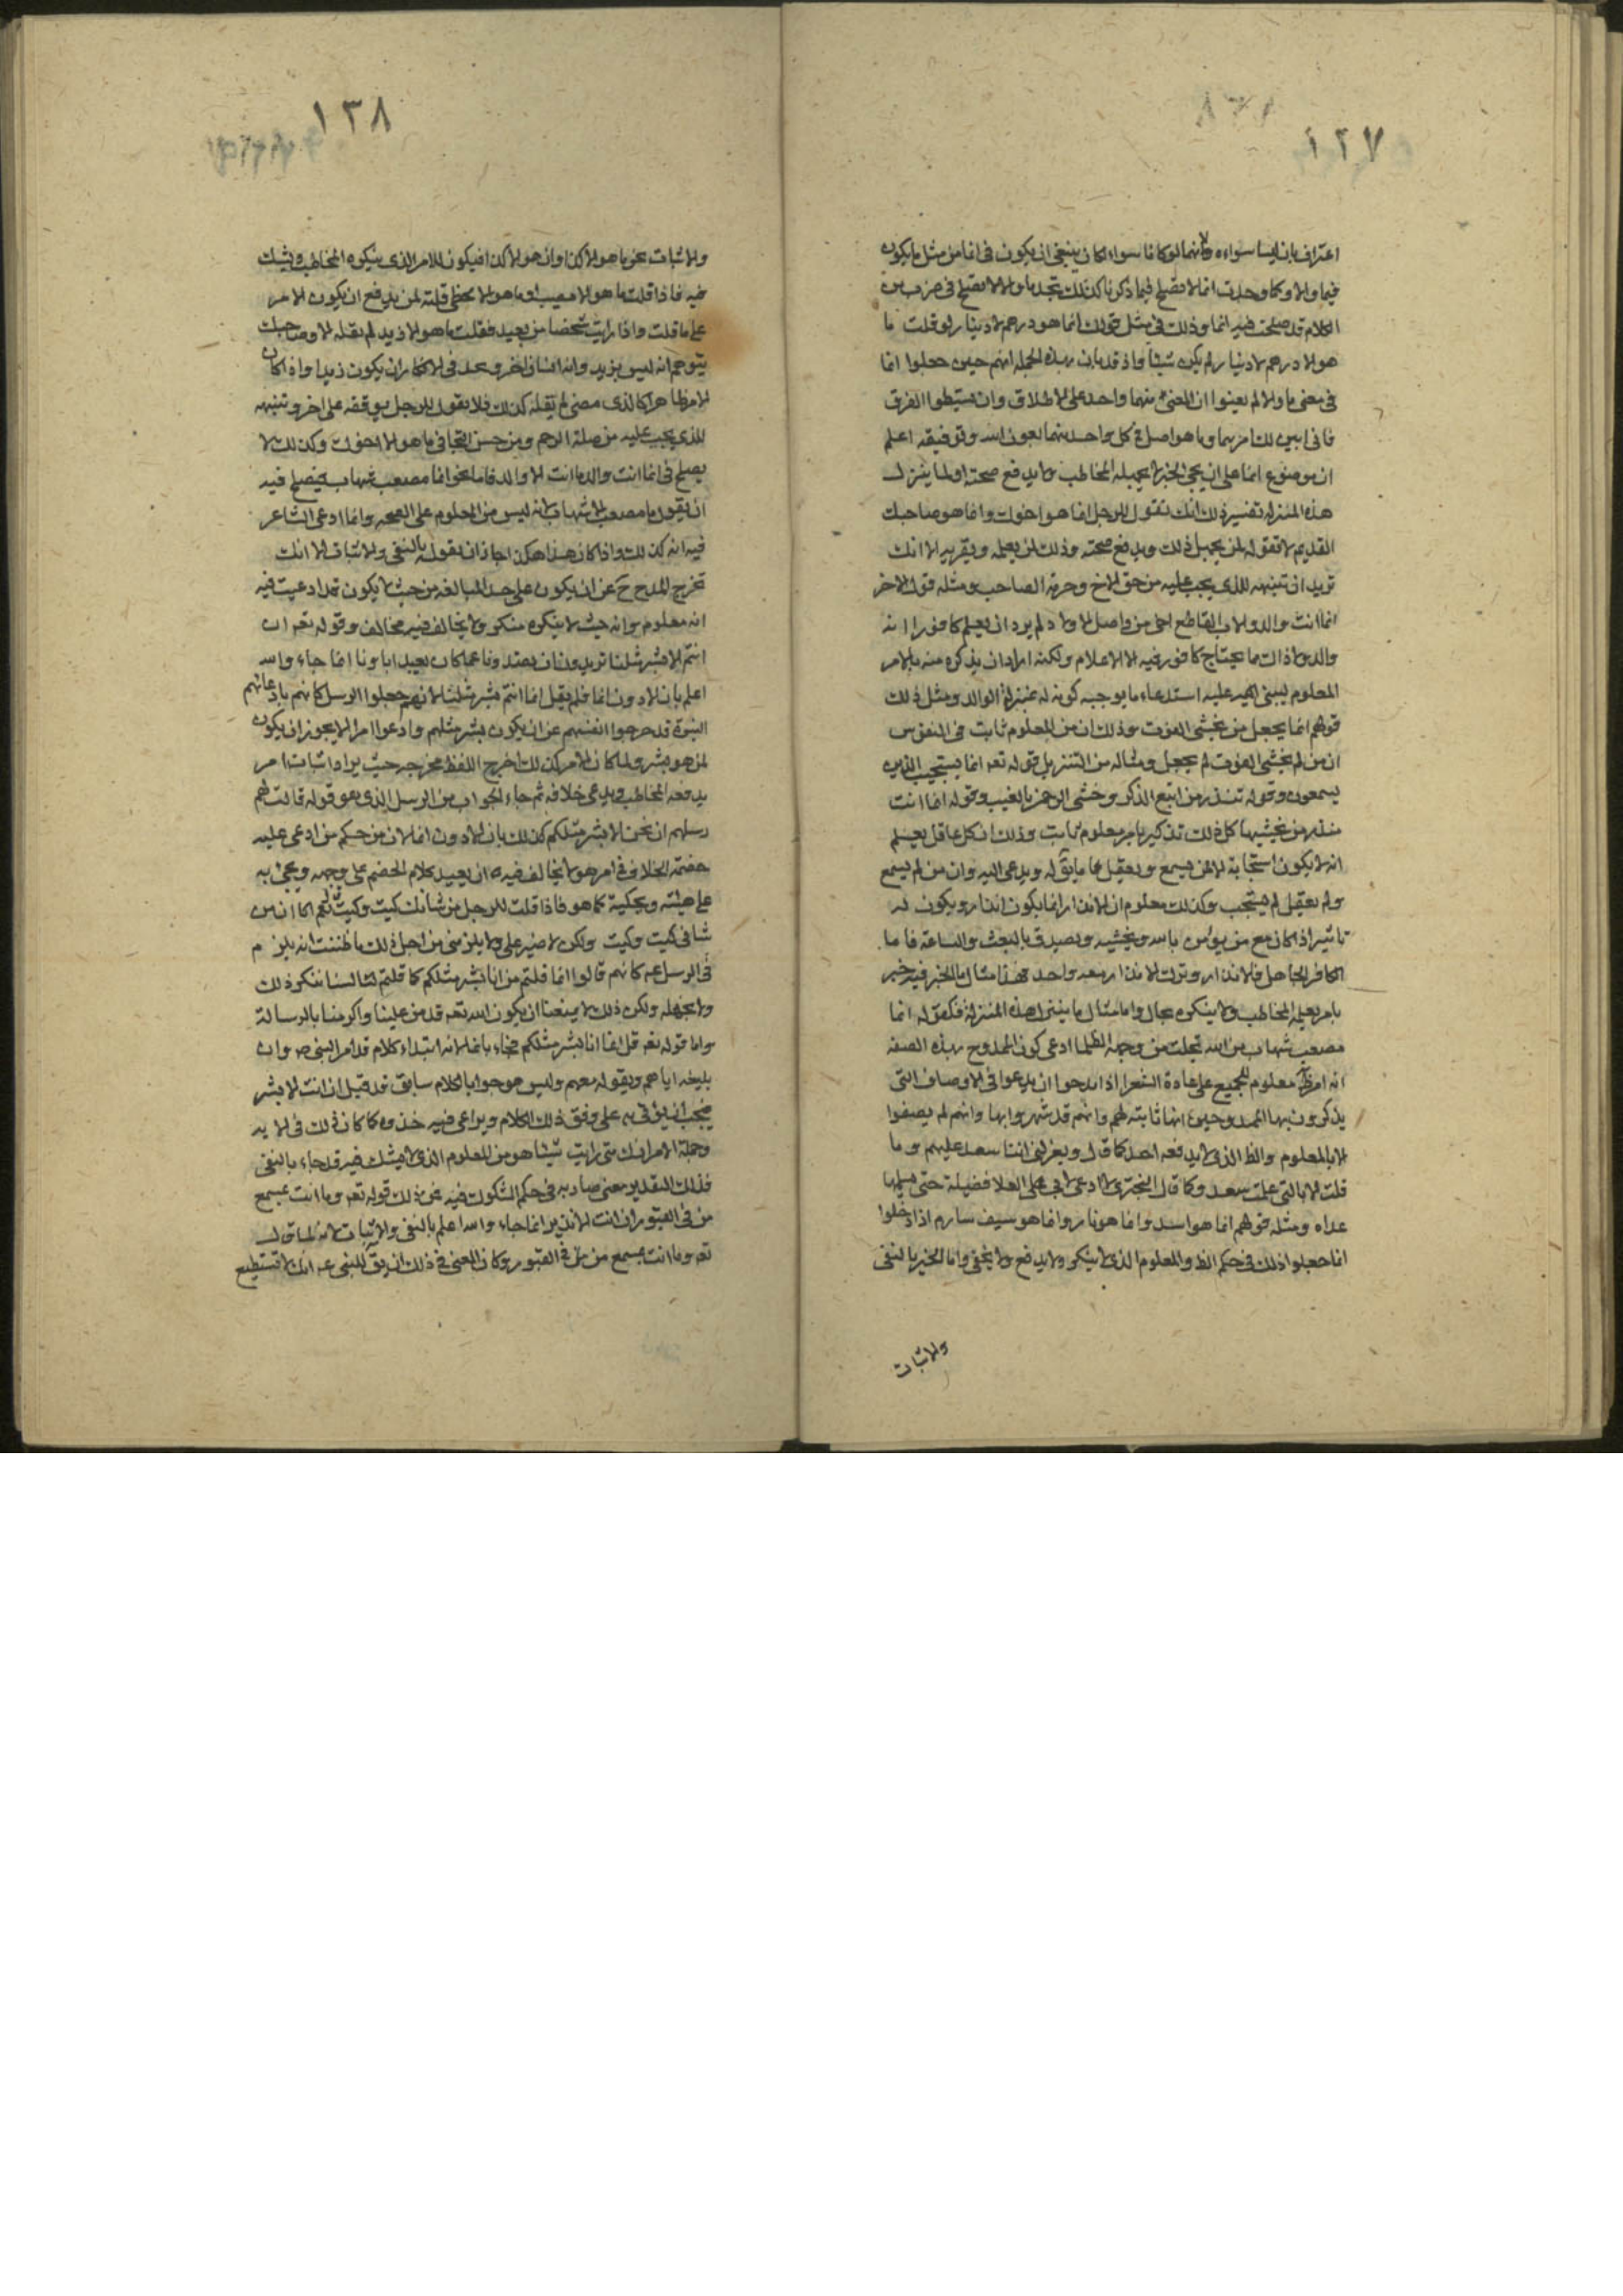 ١٢٧
اعتراف بان ليسا سواء لانهما لو كانا سواء لكان ينبغي ان يكون في انما من مثل ما يكون
فيما والا وكما وجدت انما لا تصلح فيما ذكرنا كذلك تجد ما والا لا تصلح في ضرب من
الكلام قد صلحت فيه انما وذلك في مثل قولك انما هو درهم لا دينار لو قلت ما
هو الا درهم لا دينار لم يكن شيئا واذ قد بان بهذه الجملة انهم حين جعلوا انما
في معنى ما والا لم يعنوا ان المعنى فيهما واحد على الاطلاق وان يسقطوا الفرق
فاني ابين لك امرهما وما هو اصل في كل واحد منهما بعون الله وتوفيقه اعلم
ان موضوع انما على ان يجئ لخبر لا يجهله المخاطب ولا يدفع صحته او لما ينزل
هذه المنزلة تفسير ذلك انك تقول للرجل انما هو اخوك وانما هو صاحبك
القديم لا تقوله لمن يجهل ذلك ويدفع صحته وذلك لمن يعلمه ويقر به الا انك
تريد ان تنبهه للذي يجب عليه من حق الاخ وحرمة الصاحب ومثله قول الاخر
انما انت والد والاب القاطع احنى من واصل الاولاد لم يرد ان يعلم كافورا انه
والد ولا ذاك مما يحتاج كافور فيه الا الاعلام ولكنه اراد ان يذكره منه بالامر
المعلوم ليبنى عليه استدعاء ما يوجبه كونه له بمنزلة الوالد ومثل ذلك
قولهم انما يعجل من يخشى الفوت وذلك ان من المعلوم ثابت في النفوس
ان من لم يخشى الفوت لم يعجل ومثاله من التنزيل قوله تعه انما يستجيب الذين
يسمعون وقوله تنذر من اتبع الذكر وخشي الرحمن بالغيب وقوله انما انت
منذر من يخشيها كل ذلك تذكير بامر معلوم ثابت وذلك ان كل عاقل يعلم
انه لا يكون استجابة الا ممن يسمع ويعقل عما ما يق له ويدعى اليه وان من لم يسمع
ولم يعقل لم يستجب وكذلك معلوم ان الانذار انما يكون انذار ويكون له
تاثير اذ كان مع من يؤمن بالله ويخشيه ويصدق بالبعث والساعة فاما
الكافر الجاهل فالانذار وترك الانذار معه واحد فهذا مثال ما الخبر فيه خبر
بامر يعلمه المخاطب ولا ينكره بحال واما مثال ما ينزل هذه المنزلة فكقوله انما
مصعب شهاب من الله تجلت من وجهه الظلما ادعى كون الممدوح بهذه الصفة
انه امر ظ معلوم للجميع على عادة الشعرا اذا مدحوا ان يدعوا في الاوصاف التي
يذكرون بها الممدوحين انها ثابته لهم وانهم قد شهروا بها وانهم لم يصفوا
الا بالمعلوم والظ الذي لا يدفعه احد كما قال ويعزلني ابناء سعد عليهم وما
قلت الا بالتي علمت سعد وكما قال البختري لا ادعى لابي العلا فضيلة حتى يسلمها
عداه ومثله قولهم انما هو اسد وانما هو نار وانما هو سيف سارم اذا دخلوا
انما جعلوا ذلك في حكم الظ والمعلوم الذي لا ينكر ولا يدفع ولا يخفى واما الخبر بالنفي
والاثبات
١٣٨
والاثبات نحو ما هو الا كذا وان هو الا كذا فيكون للامر الذي ينكره المخاطب ويشك
فيه فاذا قلت ما هو الا مصيب او ما هو الا مخطئ قلته لمن يدفع ان يكون الامر
على ما قلت واذا رايت شخصا من بعيد فقلت ما هو الا زيد لم تقله الا وصاحبك
يتوهم انه ليس بزيد وانه انسان اخر ويجد في الانكار ان يكون زيدا واذا كان
الامر ظاهرا كالذي مضى لم تقله كذلك فلا تقول للرجل يوقفه على اخر وتنبهه
للذي يجب عليه من صلة الرحم ومن حسن التحا في ما هو الا اخوك وكذلك لا
يصلح في انما انت والد ما انت الا والد فاما نحو انما مصعب شهاب فيصلح فيه
ان يقول ما مصعب الا شهاب لانه ليس من المعلوم على الصحه وانما ادعى الشاعر
فيه انه كذلك واذا كان هذا هكذا جاز ان يقوله بالنفي والاثبات الا انك
تخرج المدح ح عن ان يكون على حد المبالغه من حيث لا يكون قد ادعيت فيه
انه معلوم وانه حيث لا ينكره منكر ولا يخالف فيه مخالف وقوله تعه ان
انتم الا بشر مثلنا تريدون ان تصدونا عما كان يعبد اباونا انما جاء والله
اعلم بان الا دون انما فلم يقل انما انتم بشر مثلنا لانهم جعلوا الرسل كانهم بادعائهم
النبوة قد اخرجوا انفسهم عن ان يكون بشر مثلهم وادعوا امرا لا يجوز ان يكون
لمن هو بشر ولما كان الامر كذلك اخرج اللفظ مخرجه حيث يراد اثبات امر
يدفعه المخاطب ويدعى خلافه ثم جاء الجواب من الرسل الذي هو قوله قالت لهم
رسلهم ان نحن الا بشر مثلكم كذلك بان الا دون انما لان من حكم من ادعى عليه
خصمه الخلاف في امر هو لا يخالف فيه ان يعيد كلام الخصم على وجهه ويجئ به
على هيئته ويحكيه كما هو فاذا قلت للرجل من شانك كيت وكيت قال نعم انا من
شاني كيت وكيت ولكن لا ضير على ولا يلزمني من اجل ذلك ما ظننت انه يلزم
في الرسل عم كانهم قالوا انما قلتم من انا بشر مثلكم كما قلتم لثا لسنا ننكر ذلك
ولا نجهله ولكن ذلك لا يمنعنا ان يكون الله تعه قد من علينا واكرمنا بالرسالة
واما قوله تعه قل انما انا بشر مثلكم فجاء بانما لانه ابتداء كلام قد امر النبي ص وان
يبلغه اياهم ويقوله معهم وليس هو جوابا لكلام سابق قد قيل ان انت الا بشر
فيجب ان يؤتى به على وفق ذلك الكلام ويراعى فيه حذوه كما كان ذلك في الايه
وجملة الامر انك متى رايت شيئا هو من المعلوم الذي لا يشك فيه قد جاء بالنفي
فذلك لتقدير معنى صار به في حكم المشكوك فيه فمن ذلك قوله تعه وما انت بمسمع
من في القبور ان انت الا نذير انما جاء والله اعلم بالنفي والاثبات لانه لما قال
تعه وما انت بمسمع من في القبور وكان المعنى في ذلك ان يق للنبي عم انك لا تستطيع